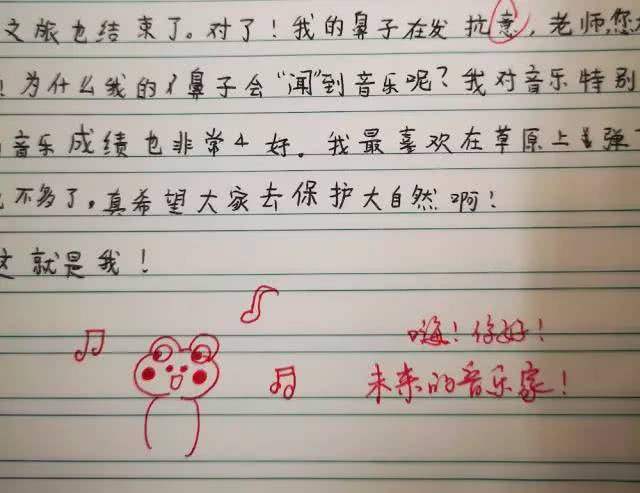 文旅也结束了。对了！我的鼻子在发抗意，老师您
！为什么我的鼻子会“闻”到音乐呢？我对音乐特别
音乐成绩也非常好。我最喜欢在草原上弹
不多了，真希望大家去保护大自然啊！
这就是我！
嗨！你好！
未来的音乐家！